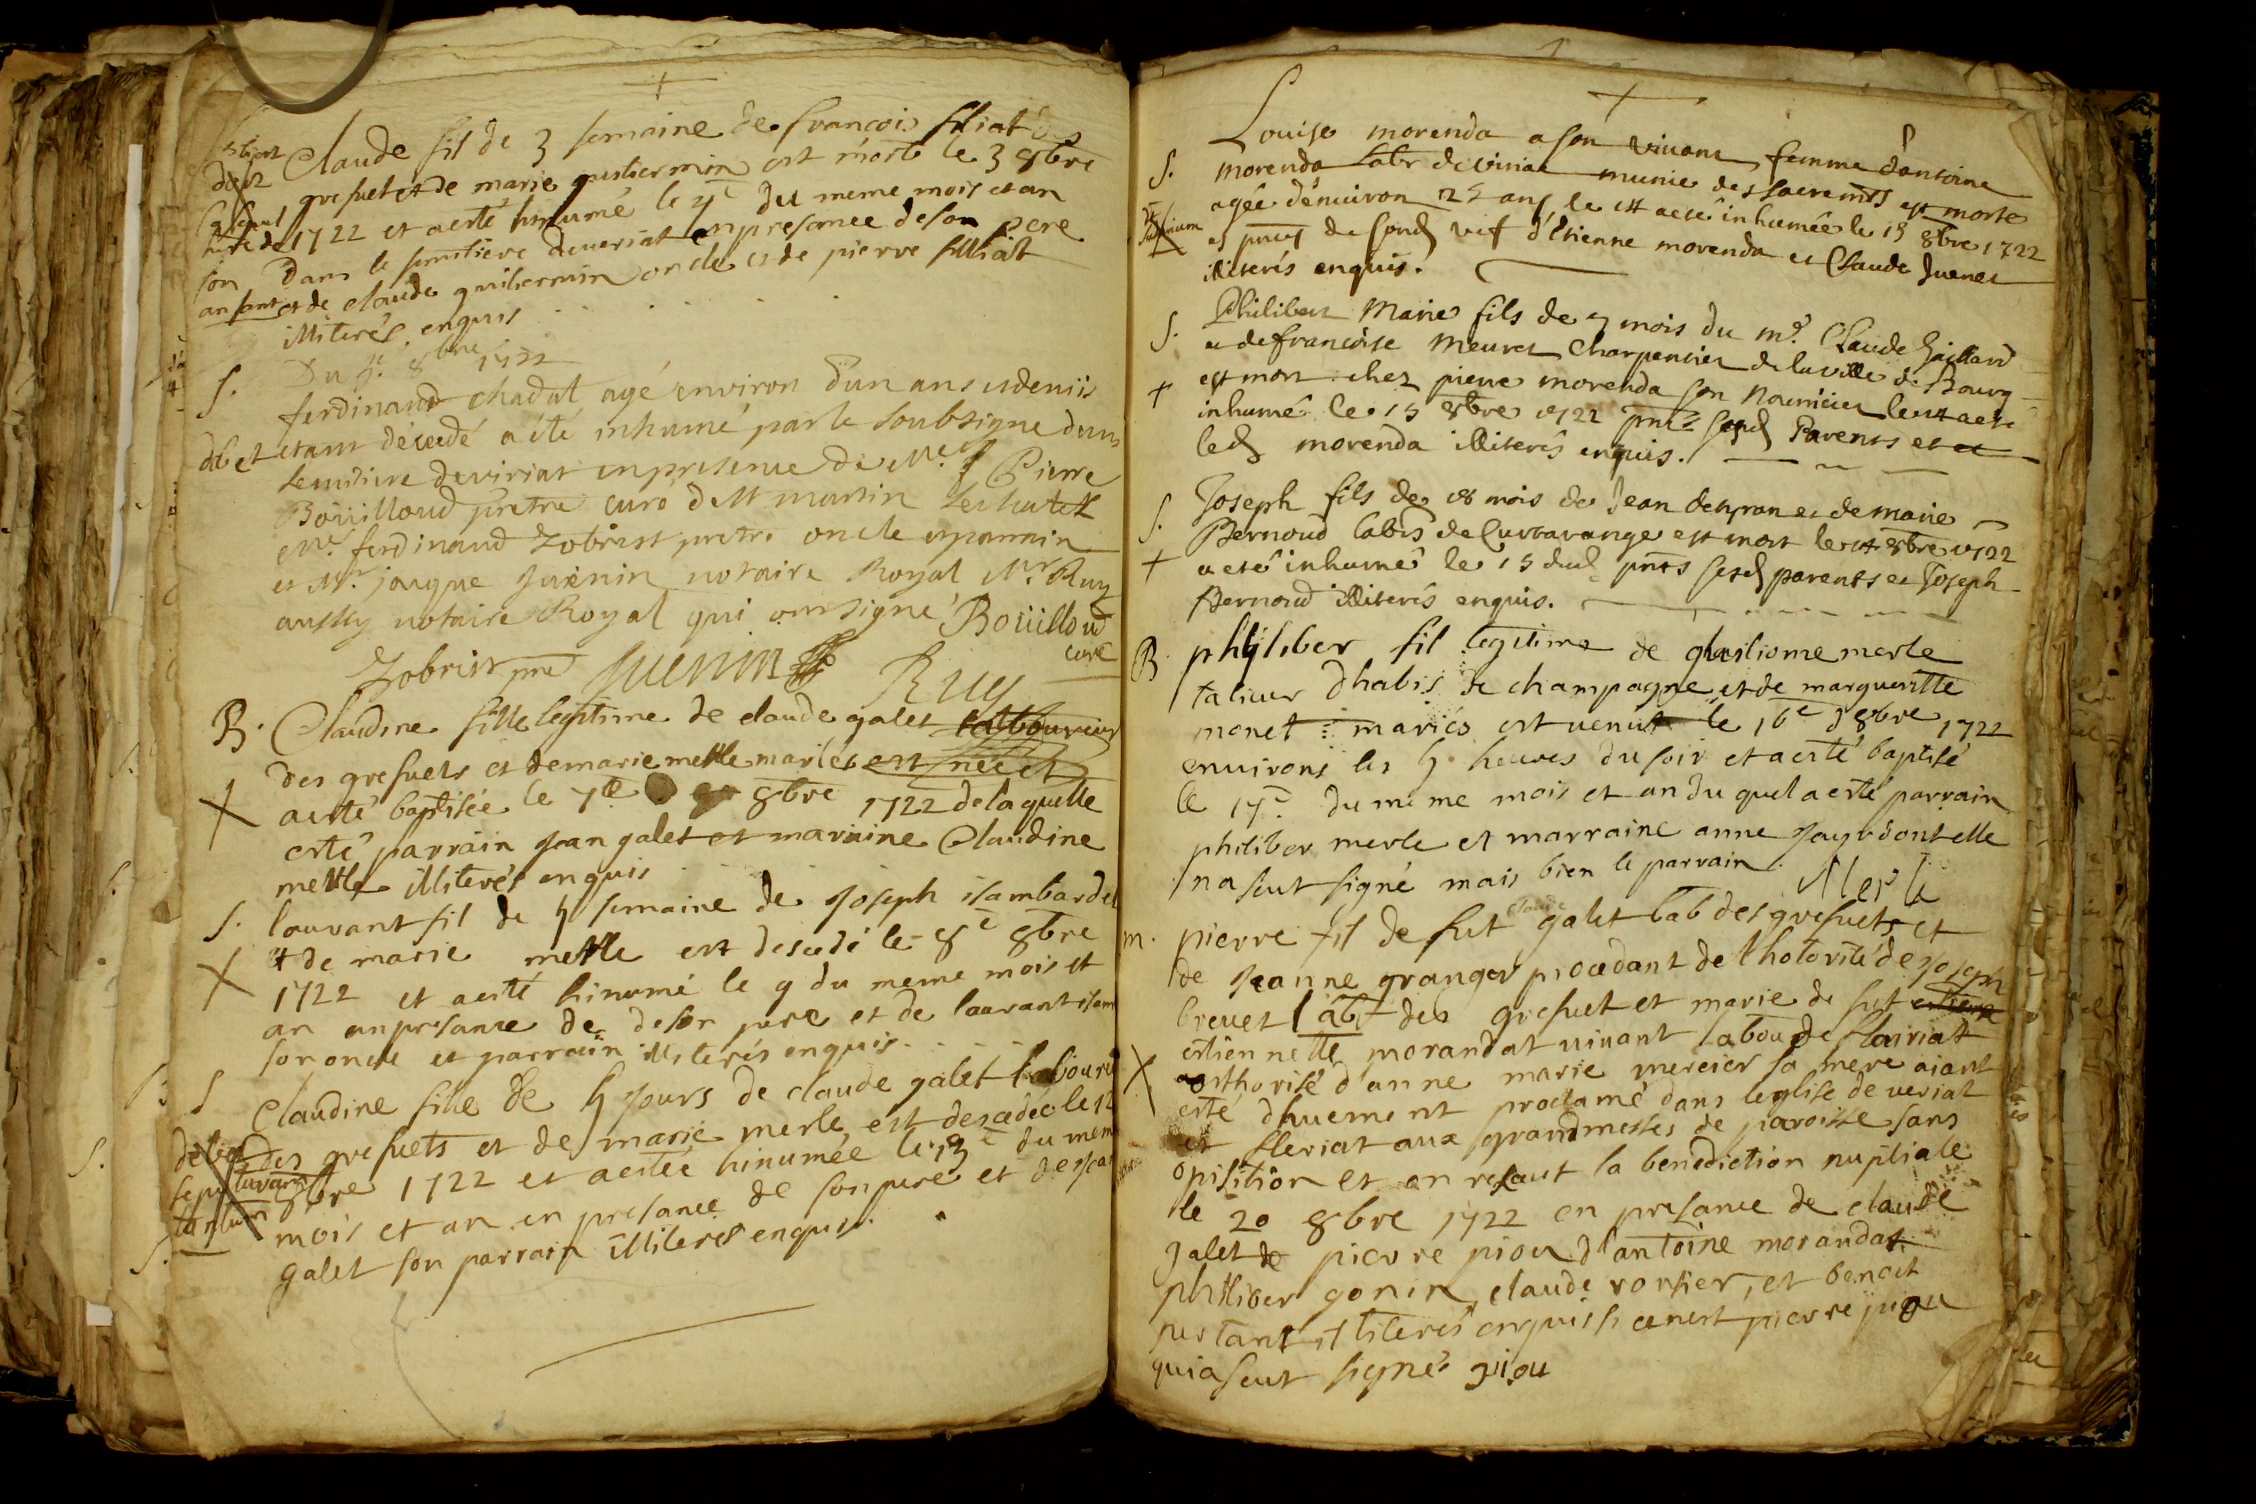 Claude fil de 3 semaine de francois filiat des
grefuet et de marie guiliermin est morte le 3 8bre
1722 et a esté hinumé le 4e du meme mois et an
Dans le semitiere de veriat en presance de son pere
et de claude guiliermin oncle et de pierre filliat
illiterés enquis
Du 7e 8bre 1722
S. ferdinand chadal agé environ d'un an et demis
etant décedé a eté inhumé par le soubsigne dans
le cimitiere de viriat en presence de Mre Pierre
Boüilloud pretre curé de st martin le chatel
Mre ferdinand Zobrist pretre oncle et parrain
et Mr. jacque Juenin notaire Royal Mr Ruy
aussy notaire Royal qui ont signé Boüilloud
curé
Zobrist pre Juenin Ruy
B. Claudine fille legitime de claude galet labboureur
des grefuets et de marie merle mariés est née et
a esté baptisée le 7e 8bre 1722 de laquelle
esté parrain jean galet et maraine Claudine
merle illiterés enquis
S. lauvant fil de 5 semaine de Joseph isambardel
et de marie merle est descedé le 8e 8bre
1722 et a esté hinumé le 9 du meme mois et
an en presance de de son pere et de lauvant isam
son oncle et parrain illiterés enquis
S Claudine fille de 5 jours de claude galet laboureur
des grefuets et de marie merle est descedée le 12
8bre 1722 et a estée hinumée le 13e du meme
mois et an en presance de son pere et de jean
galet son parrain illiterés enquis
Louise morenda a son vivant femme d'antoine
S. morenda labr de viriat munie des sacremts est morte
agée d'environ 25 ans le 14 a eté inhumée le 15 8bre 1722
es pnces de sond vef d'Etienne morenda et Claude Juenet
illiterés enquis.
S. Philibert Marie fils de 7 mois du Mre Claude Gaillard
et de francoise Meuret Charpentier de la ville de Bourg
est mort chez pierre morenda son nourricier le 14 a eté
inhumé le 15 8bre 1722 pnts sesd Parents et et
led morenda illiterés enquis.
S. Joseph fils de 18 mois de Jean despran et de marie
Bernoud labrs de Curtavange est mort le 14 8bre 1722
a eté inhumé le 15 dud pnts sesd parents et Joseph
Bernoud illiterés enquis.
B philiber fil legitime de gluiliome merle
talieur dhabis de champagne et de marguerite
monet mariés est venut le 16e d 8bre 1722
environs les 5 heures du soir et a esté baptisé
le 17e du meme mois et an du quel a esté parrain
philiber merle et marraine anne Jayr dont elle
na seut signé mais bien le parrain Merle
m. pierre fil de fut Claude galet lab des grefuets et
de Jeanne granger procedant de lhotorité de joseph
brevet lab des grefuet et marie de fut estiene
estiennette morandat vivant labou de flairiat
authorisé danne marie mercier sa mere aiant
esté dhuement proclamé dans leglise de veriat
et fleriat aux grandmesses de paroisse sans
opisition et on resaut la benediction nuptiale
le 20 8bre 1722 en presance de claude
galet de pierre piou d'antoine morandat
philiber gonin claude vorsier, et benoit
pertant illiterés enquis si ce nest pierre piou
qui a seut signé piou